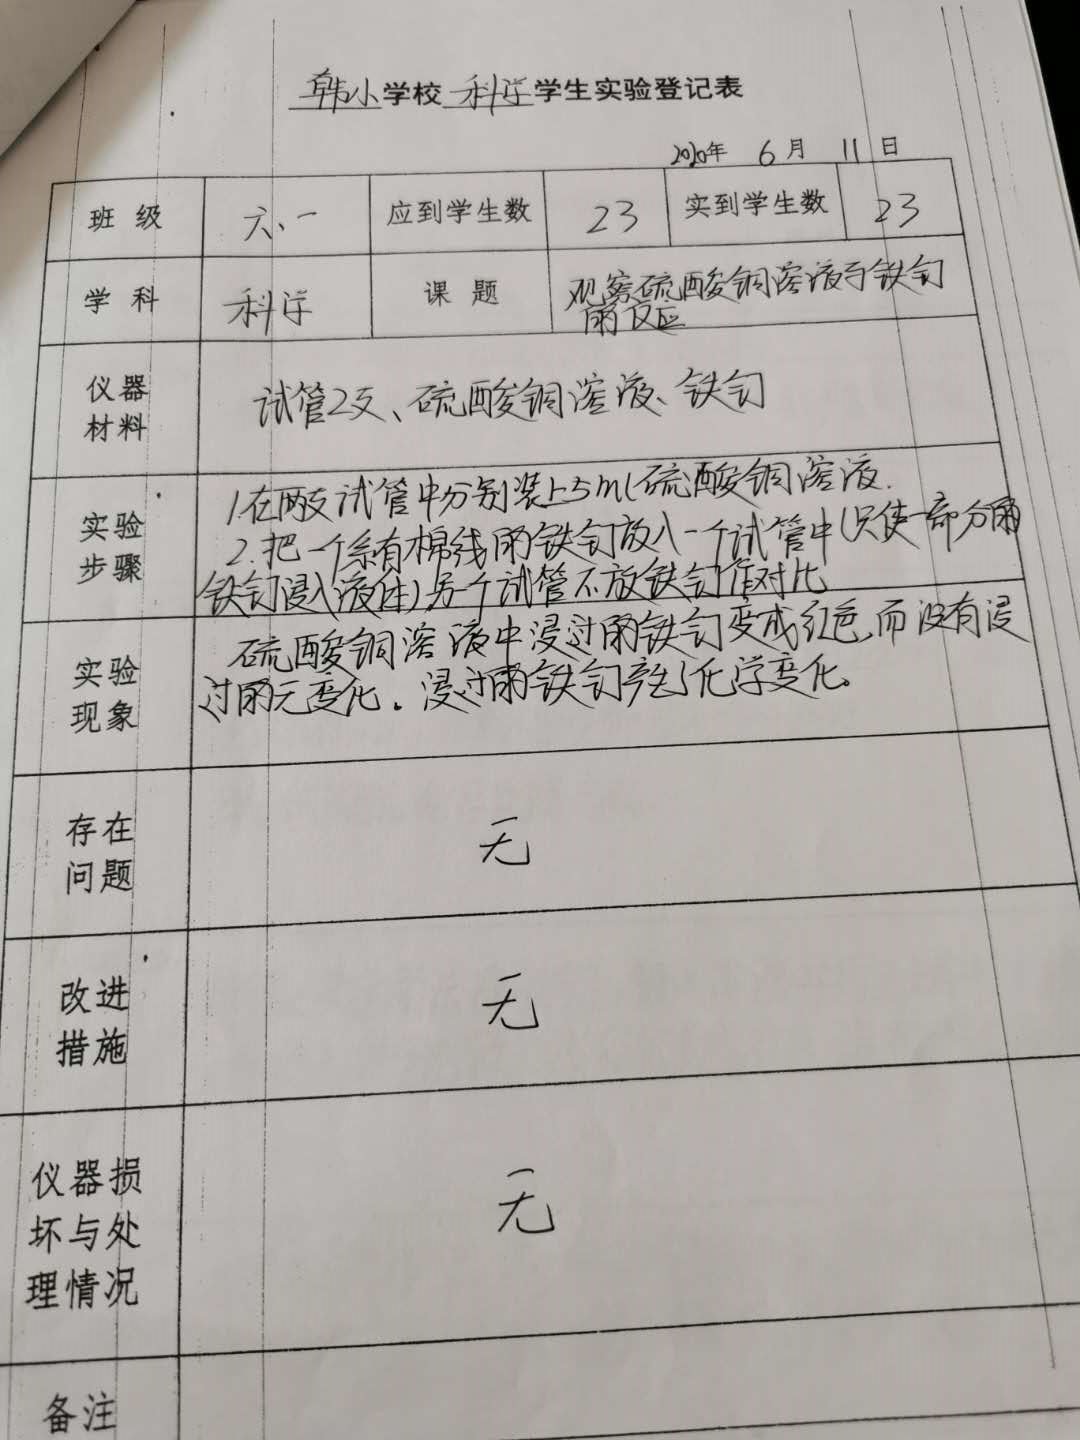 韩小学校科学学生实验登记表
2020年 6月 11日
班级 六、一 应到学生数 23 实到学生数 23
学科 科学 课题 观察硫酸铜溶液与铁钉
的反应
仪器
材料
试管2支、硫酸铜溶液、铁钉
实验
步骤
1.在两支试管中分别装上5ml硫酸铜溶液.
2.把一个系有棉线的铁钉放入一个试管中(只使一部分的
铁钉浸入液体)另一个试管不放铁钉作对比
实验
现象
硫酸铜溶液中浸过的铁钉变成红色,而没有浸
过的无变化。浸过的铁钉产生了化学变化。
存在
问题
无
改进
措施
无
仪器损
坏与处
理情况
无
备注